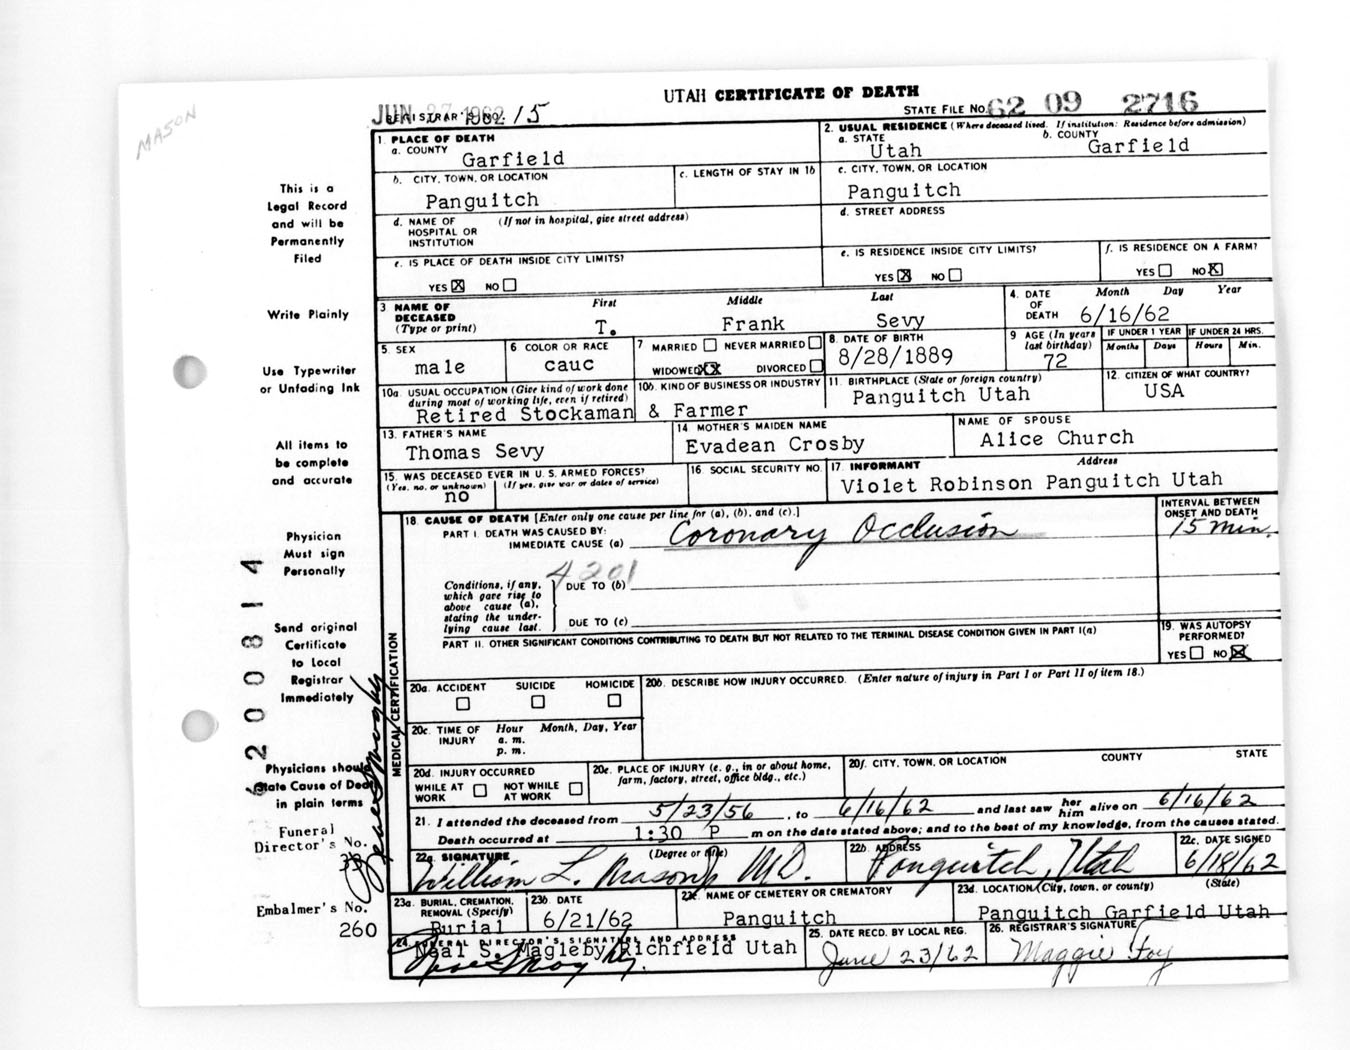 MASON
UTAH CERTIFICATE OF DEATH
JUN 27 1962
REGISTRAR'S NO. 15
STATE FILE NO. 62 09 2716
This is a
Legal Record
and will be
Permanently
Filed
Write Plainly
Use Typewriter
or Unfading Ink
All items to
be complete
and accurate
Physician
Must sign
Personally
Send original
Certificate
to Local
Registrar
Immediately
Physicians should
State Cause of Death
in plain terms
Funeral
Director's No.
Embalmer's No.
260
6200814
1. PLACE OF DEATH
a. COUNTY Garfield
2. USUAL RESIDENCE (Where deceased lived. If institution: Residence before admission)
a. STATE Utah
b. COUNTY Garfield
b. CITY, TOWN, OR LOCATION Panguitch
c. LENGTH OF STAY IN 1b
c. CITY, TOWN, OR LOCATION
Panguitch
d. NAME OF HOSPITAL OR INSTITUTION (If not in hospital, give street address)
d. STREET ADDRESS
e. IS PLACE OF DEATH INSIDE CITY LIMITS?
YES X NO
e. IS RESIDENCE INSIDE CITY LIMITS?
YES X NO
f. IS RESIDENCE ON A FARM?
YES NO X
3 NAME OF DECEASED (Type or print)
First Middle Last
T. Frank Sevy
4. DATE OF DEATH
Month Day Year
6/16/62
5. SEX male
6 COLOR OR RACE cauc
7 MARRIED NEVER MARRIED
WIDOWED XX DIVORCED
8. DATE OF BIRTH
8/28/1889
9 AGE (In years last birthday) 72
IF UNDER 1 YEAR Months Days
IF UNDER 24 HRS. Hours Min.
10a. USUAL OCCUPATION (Give kind of work done during most of working life, even if retired)
10b. KIND OF BUSINESS OR INDUSTRY
Retired Stockaman & Farmer
11. BIRTHPLACE (State or foreign country)
Panguitch Utah
12. CITIZEN OF WHAT COUNTRY?
USA
13. FATHER'S NAME
Thomas Sevy
14 MOTHER'S MAIDEN NAME
Evadean Crosby
NAME OF SPOUSE
Alice Church
15. WAS DECEASED EVER IN U. S. ARMED FORCES?
(Yes, no, or unknown) (If yes, give war or dates of service)
no
16. SOCIAL SECURITY NO.
17. INFORMANT Address
Violet Robinson Panguitch Utah
MEDICAL CERTIFICATION
18. CAUSE OF DEATH [Enter only one cause per line for (a), (b), and (c).]
INTERVAL BETWEEN ONSET AND DEATH
PART I. DEATH WAS CAUSED BY:
IMMEDIATE CAUSE (a) Coronary Occlusion 15 min.
4201
Conditions, if any, which gave rise to above cause (a), stating the underlying cause last.
DUE TO (b)
DUE TO (c)
PART II. OTHER SIGNIFICANT CONDITIONS CONTRIBUTING TO DEATH BUT NOT RELATED TO THE TERMINAL DISEASE CONDITION GIVEN IN PART I(a)
19. WAS AUTOPSY PERFORMED?
YES NO X
20a. ACCIDENT SUICIDE HOMICIDE
20b. DESCRIBE HOW INJURY OCCURRED. (Enter nature of injury in Part I or Part II of item 18.)
20c. TIME OF INJURY Hour a. m. p. m. Month, Day, Year
20d. INJURY OCCURRED
WHILE AT WORK NOT WHILE AT WORK
20e. PLACE OF INJURY (e. g., in or about home, farm, factory, street, office bldg., etc.)
20f. CITY, TOWN, OR LOCATION COUNTY STATE
21. I attended the deceased from 5/23/56, to 6/16/62 and last saw her him alive on 6/16/62
Death occurred at 1:30 P m on the date stated above; and to the best of my knowledge, from the causes stated.
22a. SIGNATURE (Degree or title)
William L. Mason MD.
22b. ADDRESS
Panguitch, Utah
22c. DATE SIGNED
6/18/62
23a. BURIAL, CREMATION, REMOVAL (Specify)
Burial
23b. DATE
6/21/62
23c. NAME OF CEMETERY OR CREMATORY
Panguitch
23d. LOCATION (City, town, or county) (State)
Panguitch Garfield Utah
24. FUNERAL DIRECTOR'S SIGNATURE AND ADDRESS
Neal S. Magleby Richfield Utah
Neal S Magleby.
25. DATE RECD. BY LOCAL REG.
June 23/62
26. REGISTRAR'S SIGNATURE
Maggie Foy